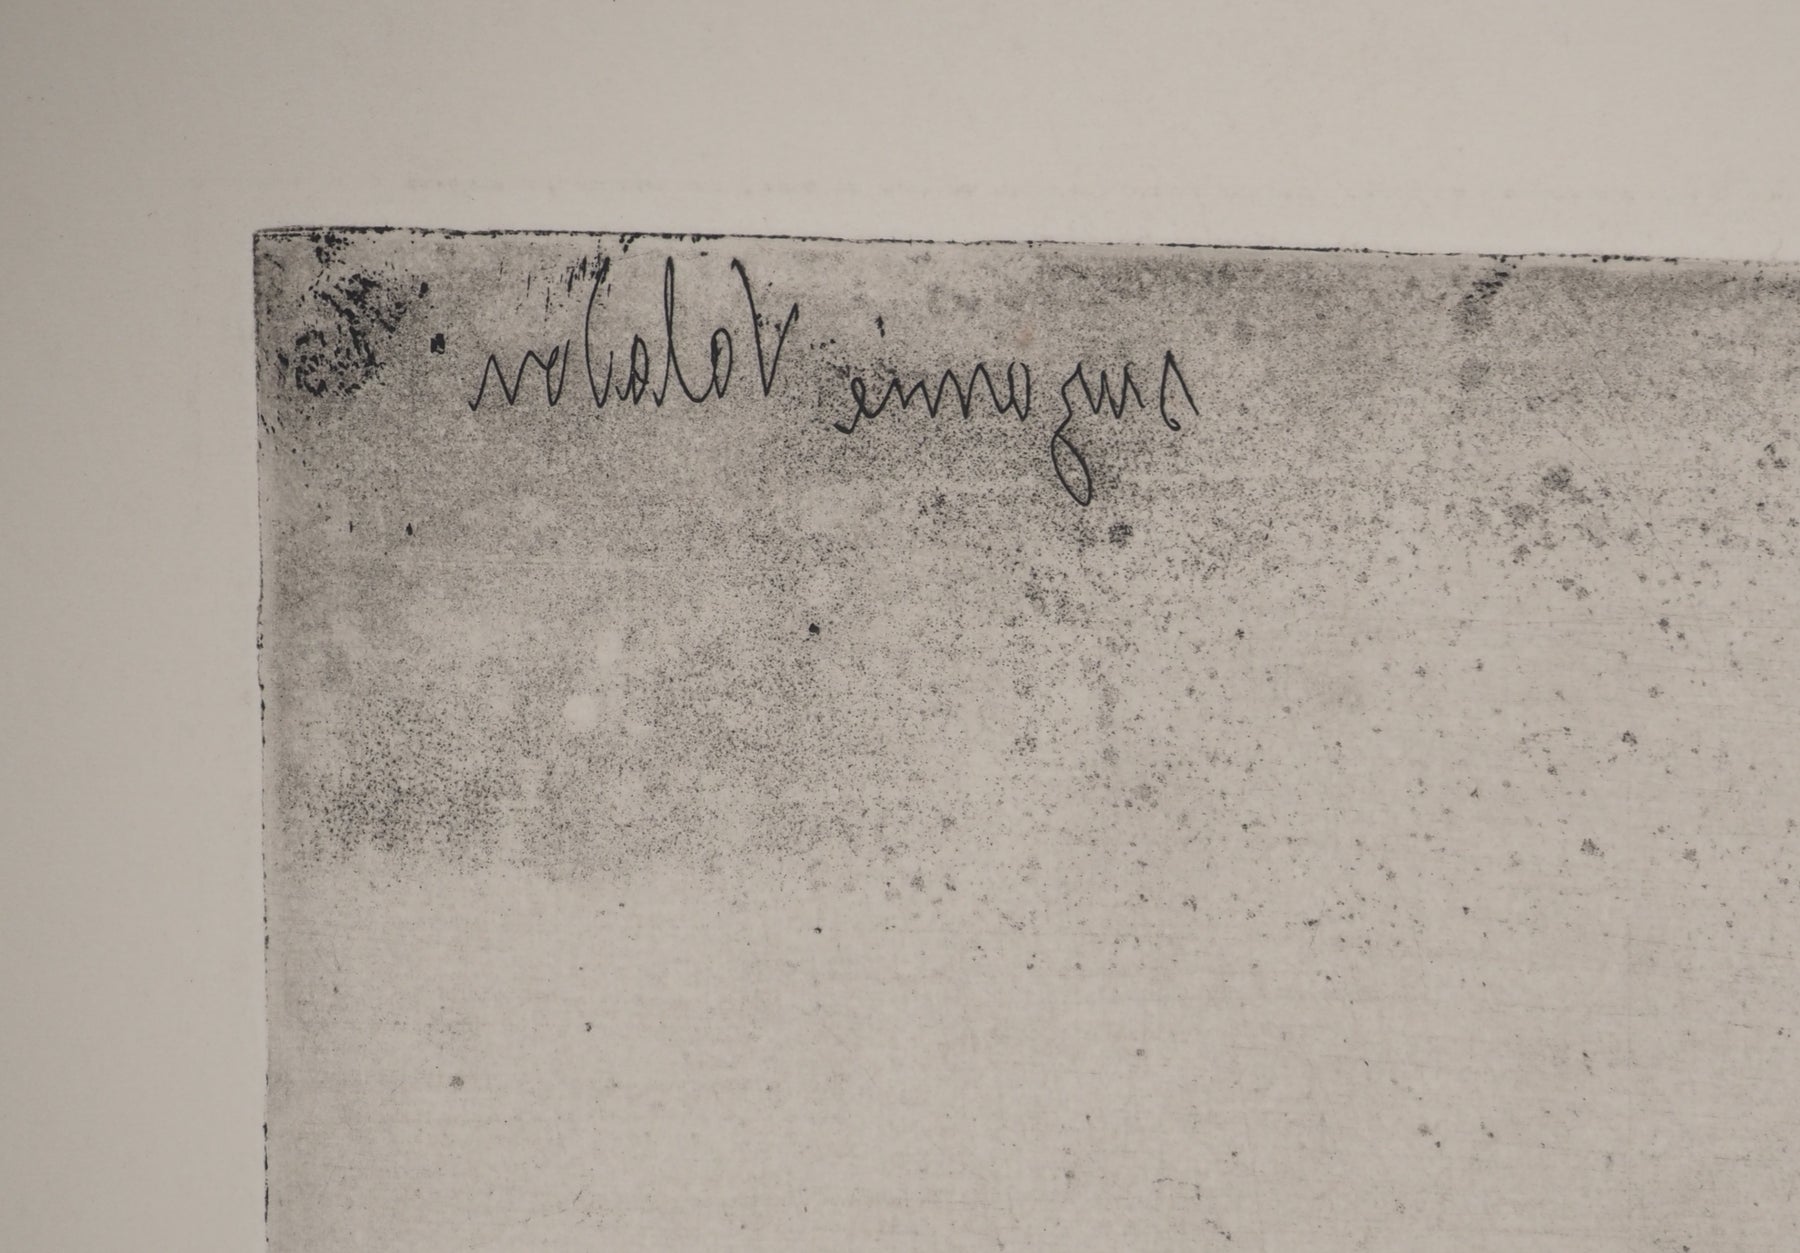 Suzanne Valadon